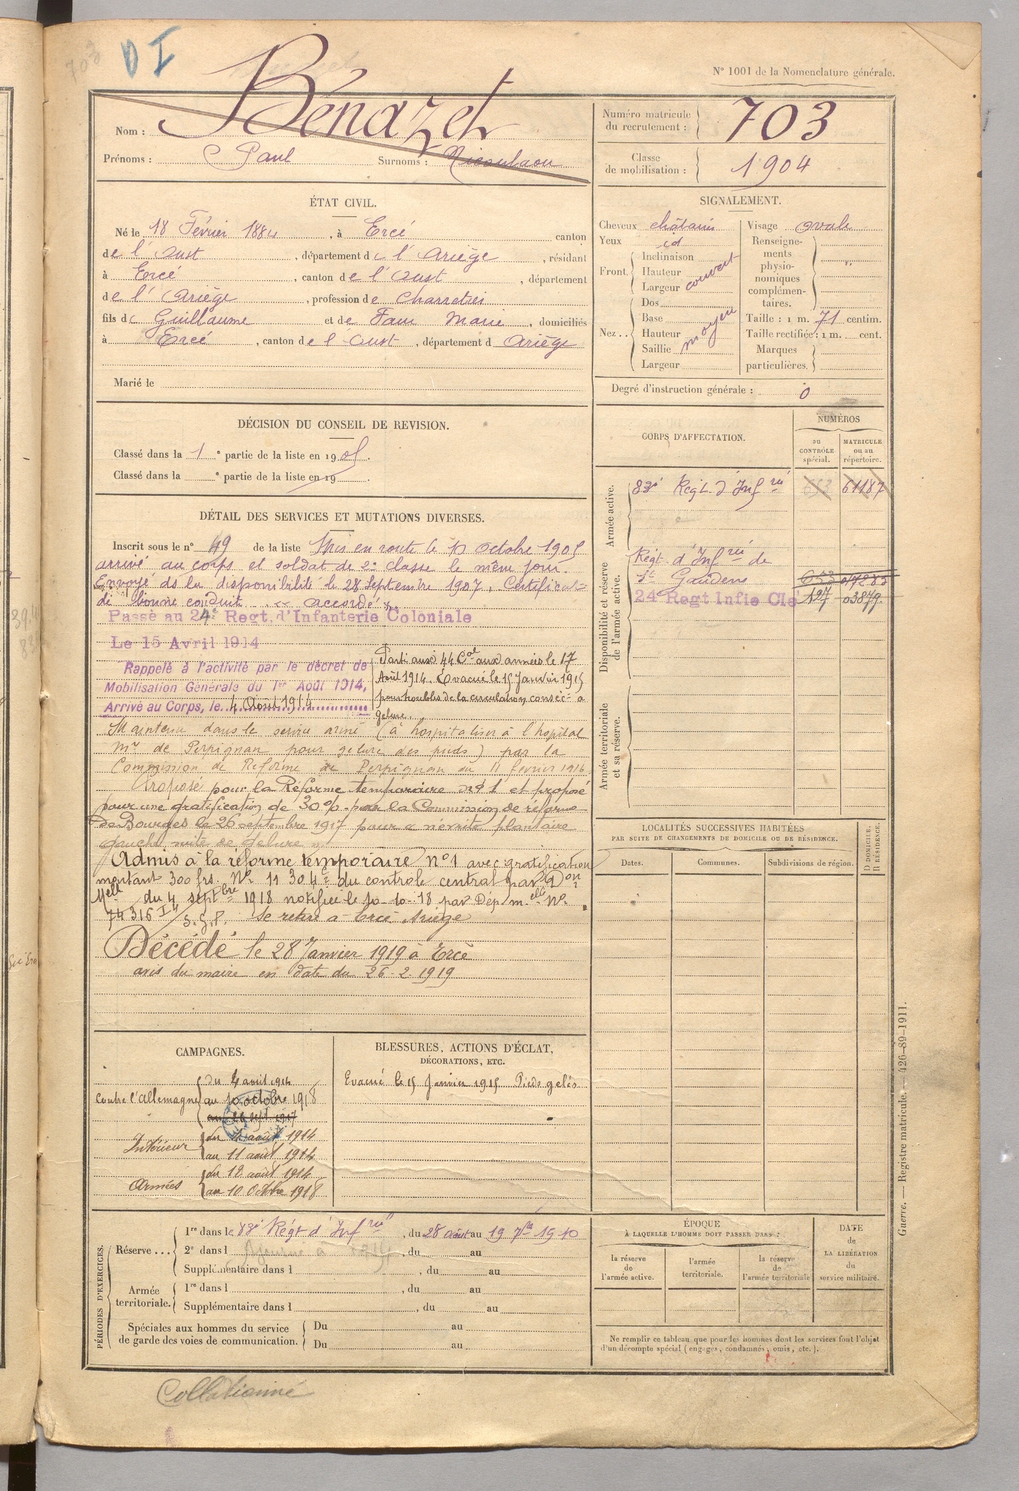 D I
N° 1001 de la Nomenclature générale.
Nom : Bénazet
Prénoms : Paul Surnoms : Nicoulaou
Numéro matricule du recrutement : 703
Classe de mobilisation : 1904
ÉTAT CIVIL.
Né le 18 Février 1884, à Ercé canton
de l'Oust, département de l'Ariège, résidant
à Ercé, canton de l'Oust, département
de l'Ariège, profession de Charretier
fils de Guillaume et de Faur Marie, domiciliés
à Ercé, canton de l'Oust, département d Ariège
Marié le
SIGNALEMENT.
Cheveux châtain
Yeux id
Front. Inclinaison
Hauteur
Largeur couvert
Nez.. Dos
Base
Hauteur
Saillie moyen
Largeur
Visage ovale
Renseignements physionomiques complémentaires. "
Taille : 1 m. 71 centim.
Taille rectifiée : 1 m. cent.
Marques particulières.
Degré d'instruction générale : 0
DÉCISION DU CONSEIL DE REVISION.
Classé dans la 1e partie de la liste en 1905.
Classé dans la e partie de la liste en 19
CORPS D'AFFECTATION.
NUMÉROS
AU CONTRÔLE spécial.
MATRICULE ou au répertoire.
Armée active.
83e Regt. d'Infrie 61187
Disponibilité et réserve de l'armée active.
Régt d'Infrie de
St Gaudens 053
24e Regt Infie Cle 197 03879
Armée territoriale et sa réserve.
DÉTAIL DES SERVICES ET MUTATIONS DIVERSES.
Inscrit sous le n° 49 de la liste Mis en route le octobre 1905
arrivé au corps et soldat de 2e classe le même jour.
Envoyé ds la disponibilité le 28 Septembre 1907. Certificat
de bonne conduite accordé.
Passé au 24e Regt. d'Infanterie Coloniale
Le 15 Avril 1914
Rappelé à l'activité par le décret de
Mobilisation Générale du 1er Août 1914,
Arrivé au Corps, le 4 Août 1914
Parti aux 44e Col aux armées le 17
Août 1914. Evacué le 15 janvier 1915
pour troubles de la circulation conséc. à
gelure.
Maintenu dans le service armé (à hospitaliser à l'hopital
mre de Perpignan pour gelure des pieds) par la
Commission de Réforme de Perpignan du 11 février 1916.
Proposé pour la Réforme temporaire n° 1 et proposé
pour une gratification de 30% par la Commission de réforme
de Bourges le 26 septembre 1917 pour "névrite plantaire
gauche, suite de gelure"
Admis à la réforme temporaire N°1 avec gratification
montant 300 frs. N° 11 304e du controle central par Don
Mелle du 4 septbre 1918 notifiée le 10-10-18 par Dep. melle N°
74315 I/4 S.G.P. Se retire à Ercé Ariège
Décédé le 28 Janvier 1919 à Ercé
avis du maire en date du 26-2-1919
LOCALITÉS SUCCESSIVES HABITÉES
PAR SUITE DE CHANGEMENTS DE DOMICILE OU DE RÉSIDENCE.
Dates. Communes. Subdivisions de région. D DOMICILE, R RÉSIDENCE.
CAMPAGNES.
Contre l'Allemagne
du 4 août 1914
au 10 octobre 1918
au 26 sept 1917
Intérieur
du 4 août 1914
au 11 août 1914
Armées
du 12 août 1914
au 10 Octbre 1918
BLESSURES, ACTIONS D'ÉCLAT,
DÉCORATIONS, ETC.
Evacué le 15 Janvier 1915 Pieds gelés
PÉRIODES D'EXERCICES.
Réserve...
1re dans le 83e Régt d'Infrie, du 28 août au 19 7bre 1910
2e dans l Ajourné à 1914, du au
Supplémentaire dans l, du au
Armée territoriale.
1re dans l, du au
Supplémentaire dans l, du au
Spéciales aux hommes du service de garde des voies de communication.
Du au
Du au
ÉPOQUE
À LAQUELLE L'HOMME DOIT PASSER DANS :
la réserve de l'armée active.
l'armée territoriale.
la réserve de l'armée territoriale
DATE de LA LIBÉRATION du service militaire.
Ne remplir ce tableau que pour les hommes dont les services font l'objet
d'un décompte spécial (engagés, condamnés, omis, etc.).
Guerre. — Registre matricule. — 426-89-1911.
Collationné